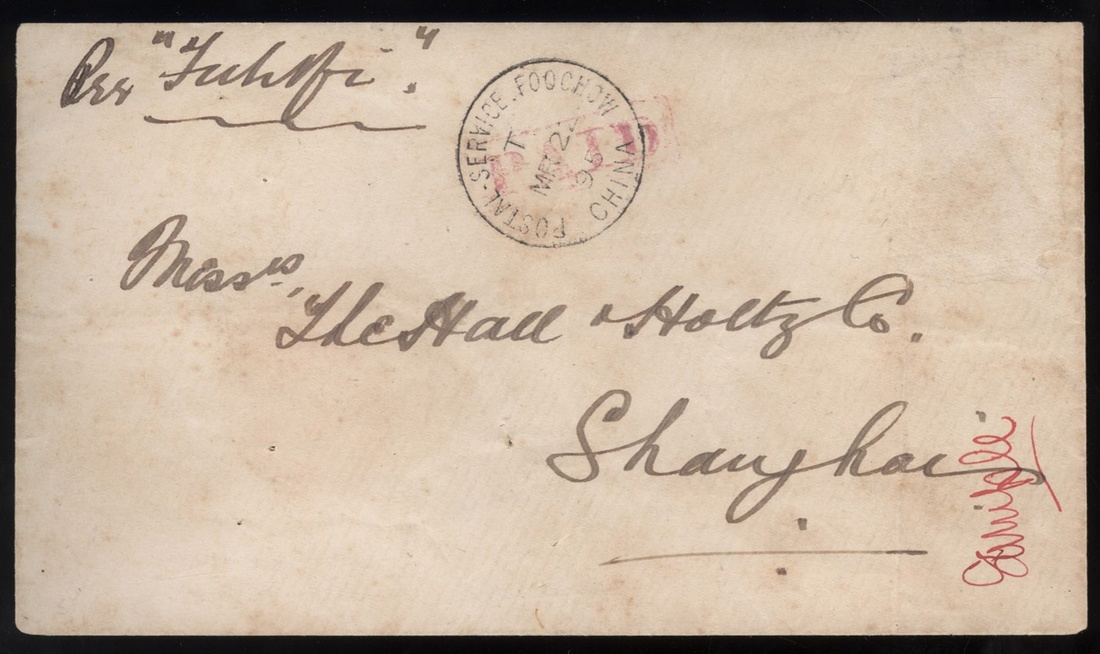 Per "Fuhshi."
POSTAL-SERVICE. FOOCHOW CHINA
22
95
PAID
Messrs.
The Hall & Holtz Co.
Shanghai